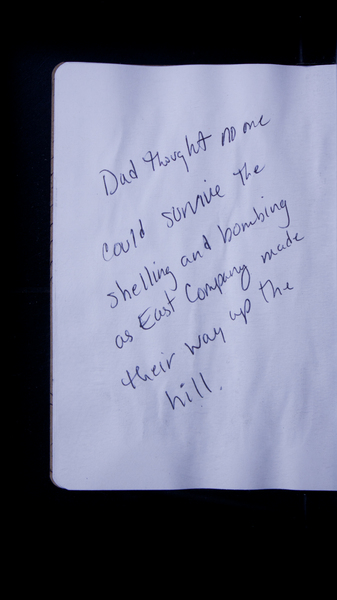 Dad thought no one
could survive the
shelling and bombing
as East Company made
their way up the
hill.